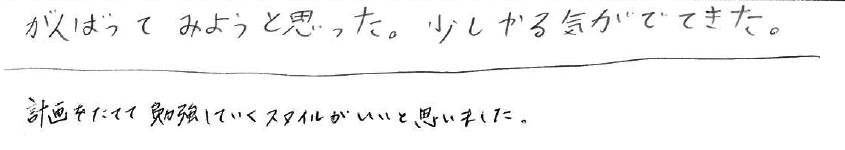 がんばってみようと思った。少しやる気がでてきた。
計画をたてて勉強していくスタイルがいいと思いました。